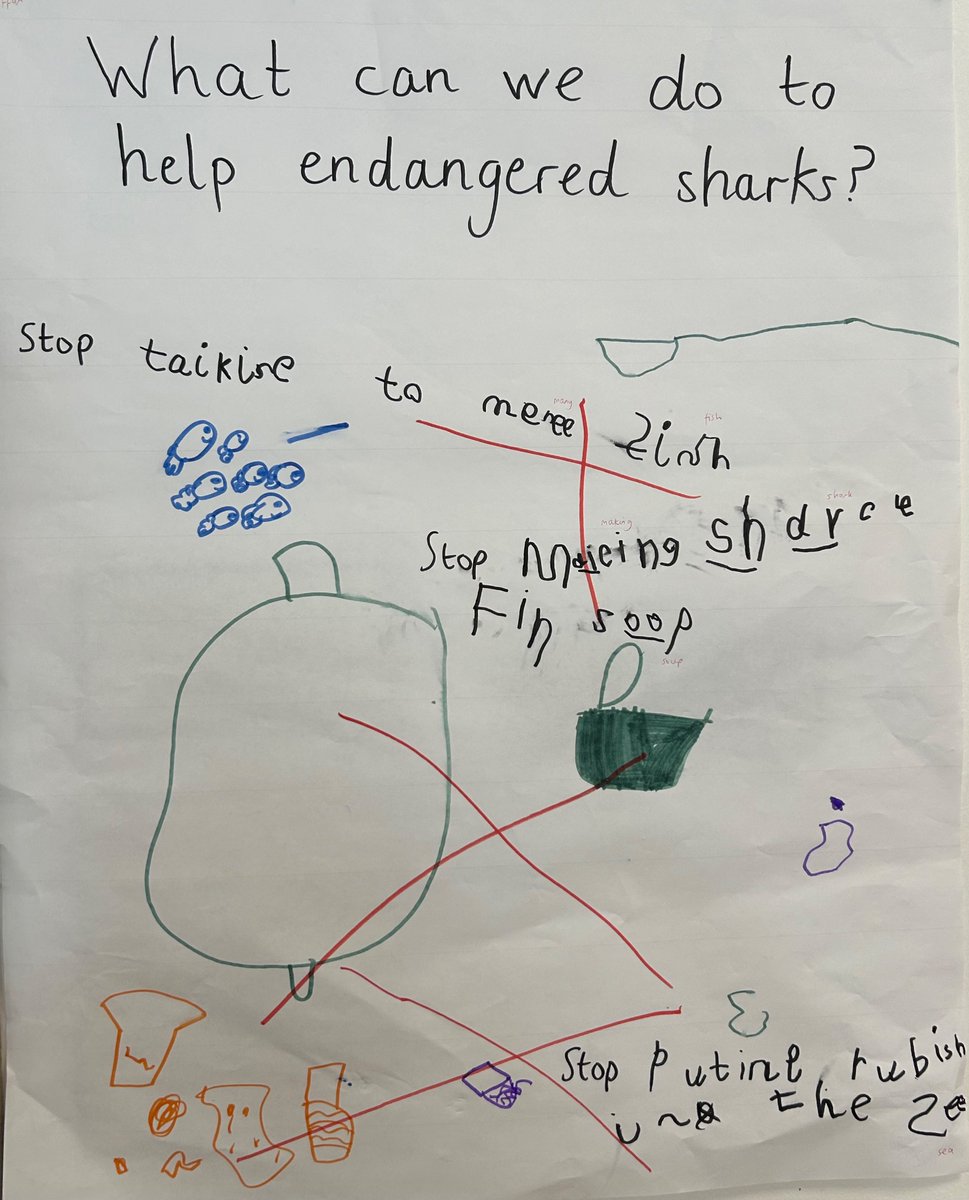 What can we do to
help endangered sharks?
Stop taikine to menee Zinsh
many
fish
Stop maieing sharce
making
shark
Fin soop
soup
Stop Putine rubish
in the Ze
sea